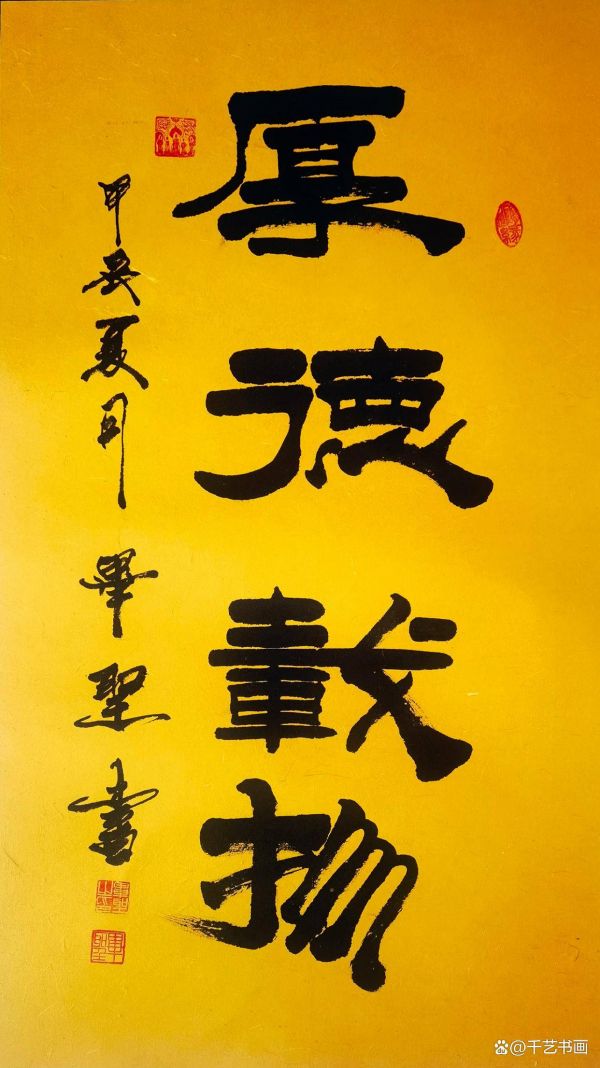 厚德載物
甲辰夏月畢聖書
@千艺书画